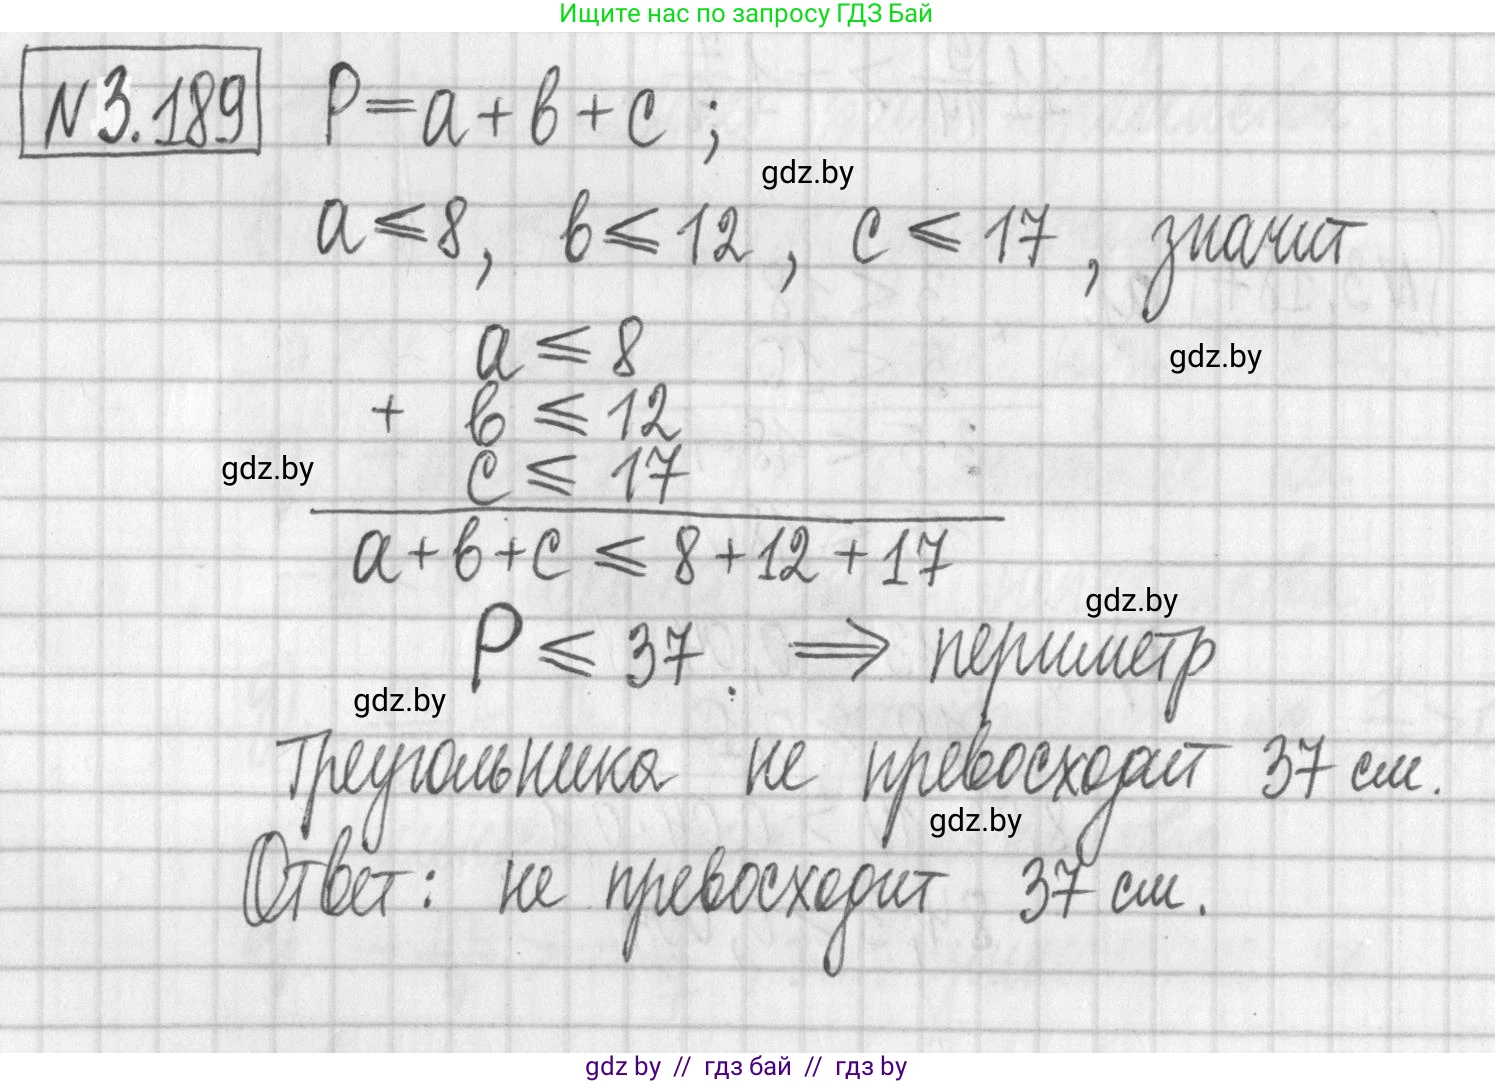 Ищите нас по запросу ГДЗ Бай
№3.189 P=a+b+c ;
gdz.by
a⩽8, b⩽12, c⩽17, значит
a⩽8
gdz.by
+ b⩽12
gdz.by
c⩽17
a+b+c⩽8+12+17
gdz.by
P⩽37. ⟹ периметр
gdz.by
треугольника не превосходит 37 см.
gdz.by
Ответ: не превосходит 37 см.
gdz.by // гдз бай // гдз by